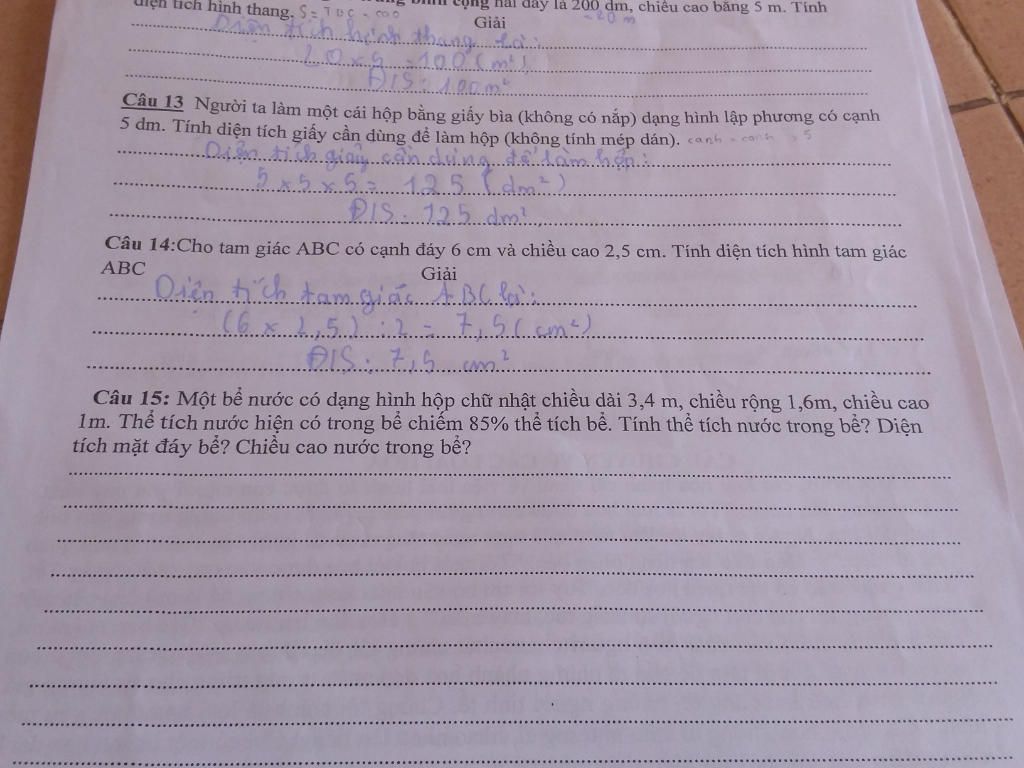 diện tích hình thang. S = TBC × cao
cộng hai đáy là 200 dm, chiều cao bằng 5 m. Tính
= 20 m
Giải
Diện tích hình thang là:
20 × 5 = 100 (m²)
Đ/S: 100 m²
Câu 13 Người ta làm một cái hộp bằng giấy bìa (không có nắp) dạng hình lập phương có cạnh
5 dm. Tính diện tích giấy cần dùng để làm hộp (không tính mép dán). cạnh × cạnh × 5
Diện tích giấy cần dùng để làm hộp:
5 × 5 × 5 = 125 (dm²)
Đ/S: 125 dm²
Câu 14:Cho tam giác ABC có cạnh đáy 6 cm và chiều cao 2,5 cm. Tính diện tích hình tam giác
ABC
Giải
Diện tích tam giác ABC là:
(6 × 2,5) : 2 = 7,5 (cm²)
Đ/S: 7,5 cm²
Câu 15: Một bể nước có dạng hình hộp chữ nhật chiều dài 3,4 m, chiều rộng 1,6m, chiều cao
1m. Thể tích nước hiện có trong bể chiếm 85% thể tích bể. Tính thể tích nước trong bể? Diện
tích mặt đáy bể? Chiều cao nước trong bể?